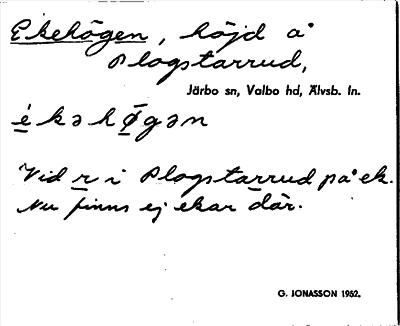 Ekehögen, höjd å
Plogstarrud,
Järbo sn, Valbo hd, Älvsb. ln.
ékəhø̄gən
Vid r i Plogstarrud på ek.
Nu finns ej ekar där.
G. JONASSON 1952.